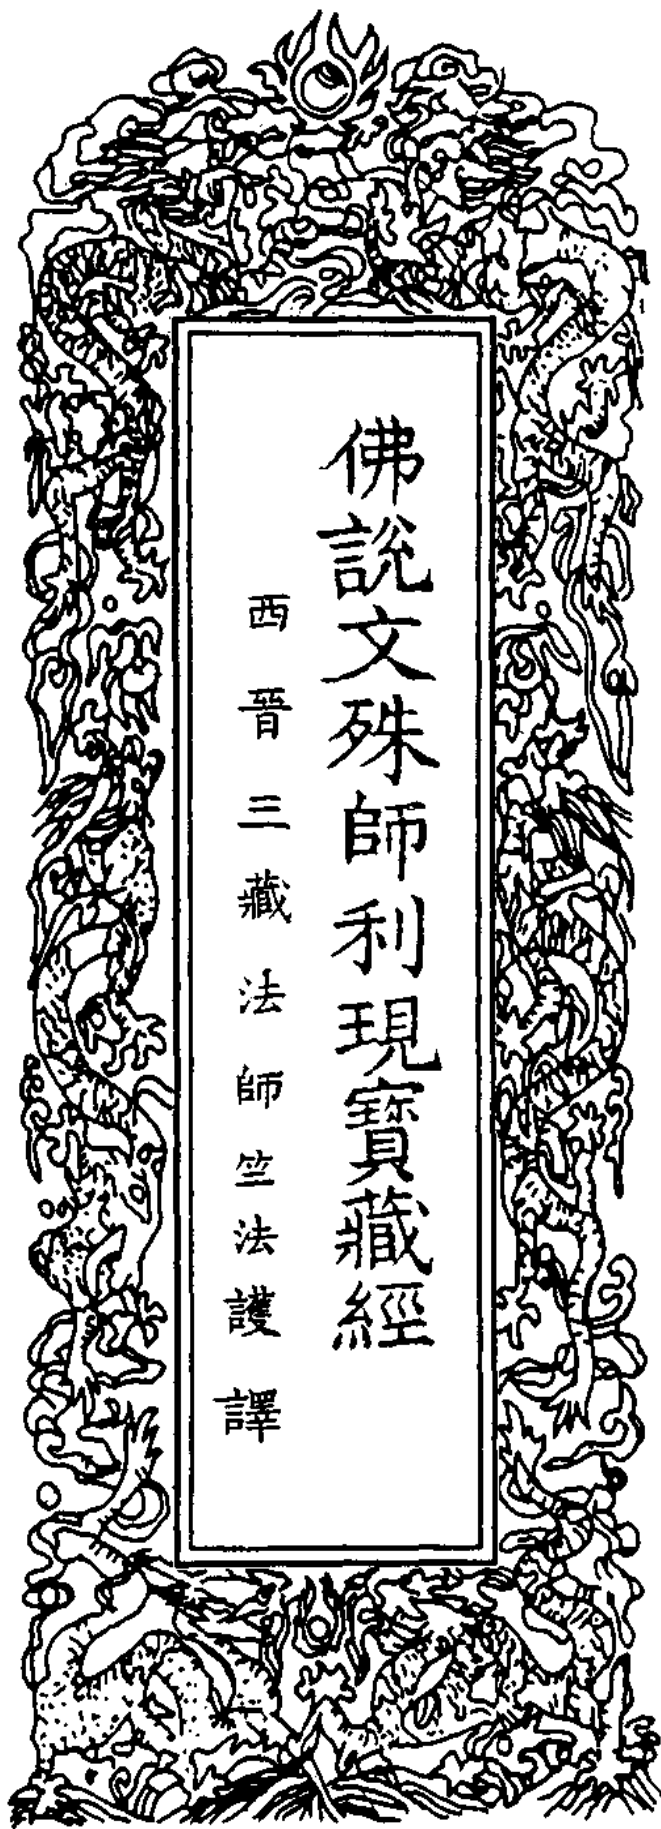 佛說文殊師利現寶藏經
西晉三藏法師竺法護譯